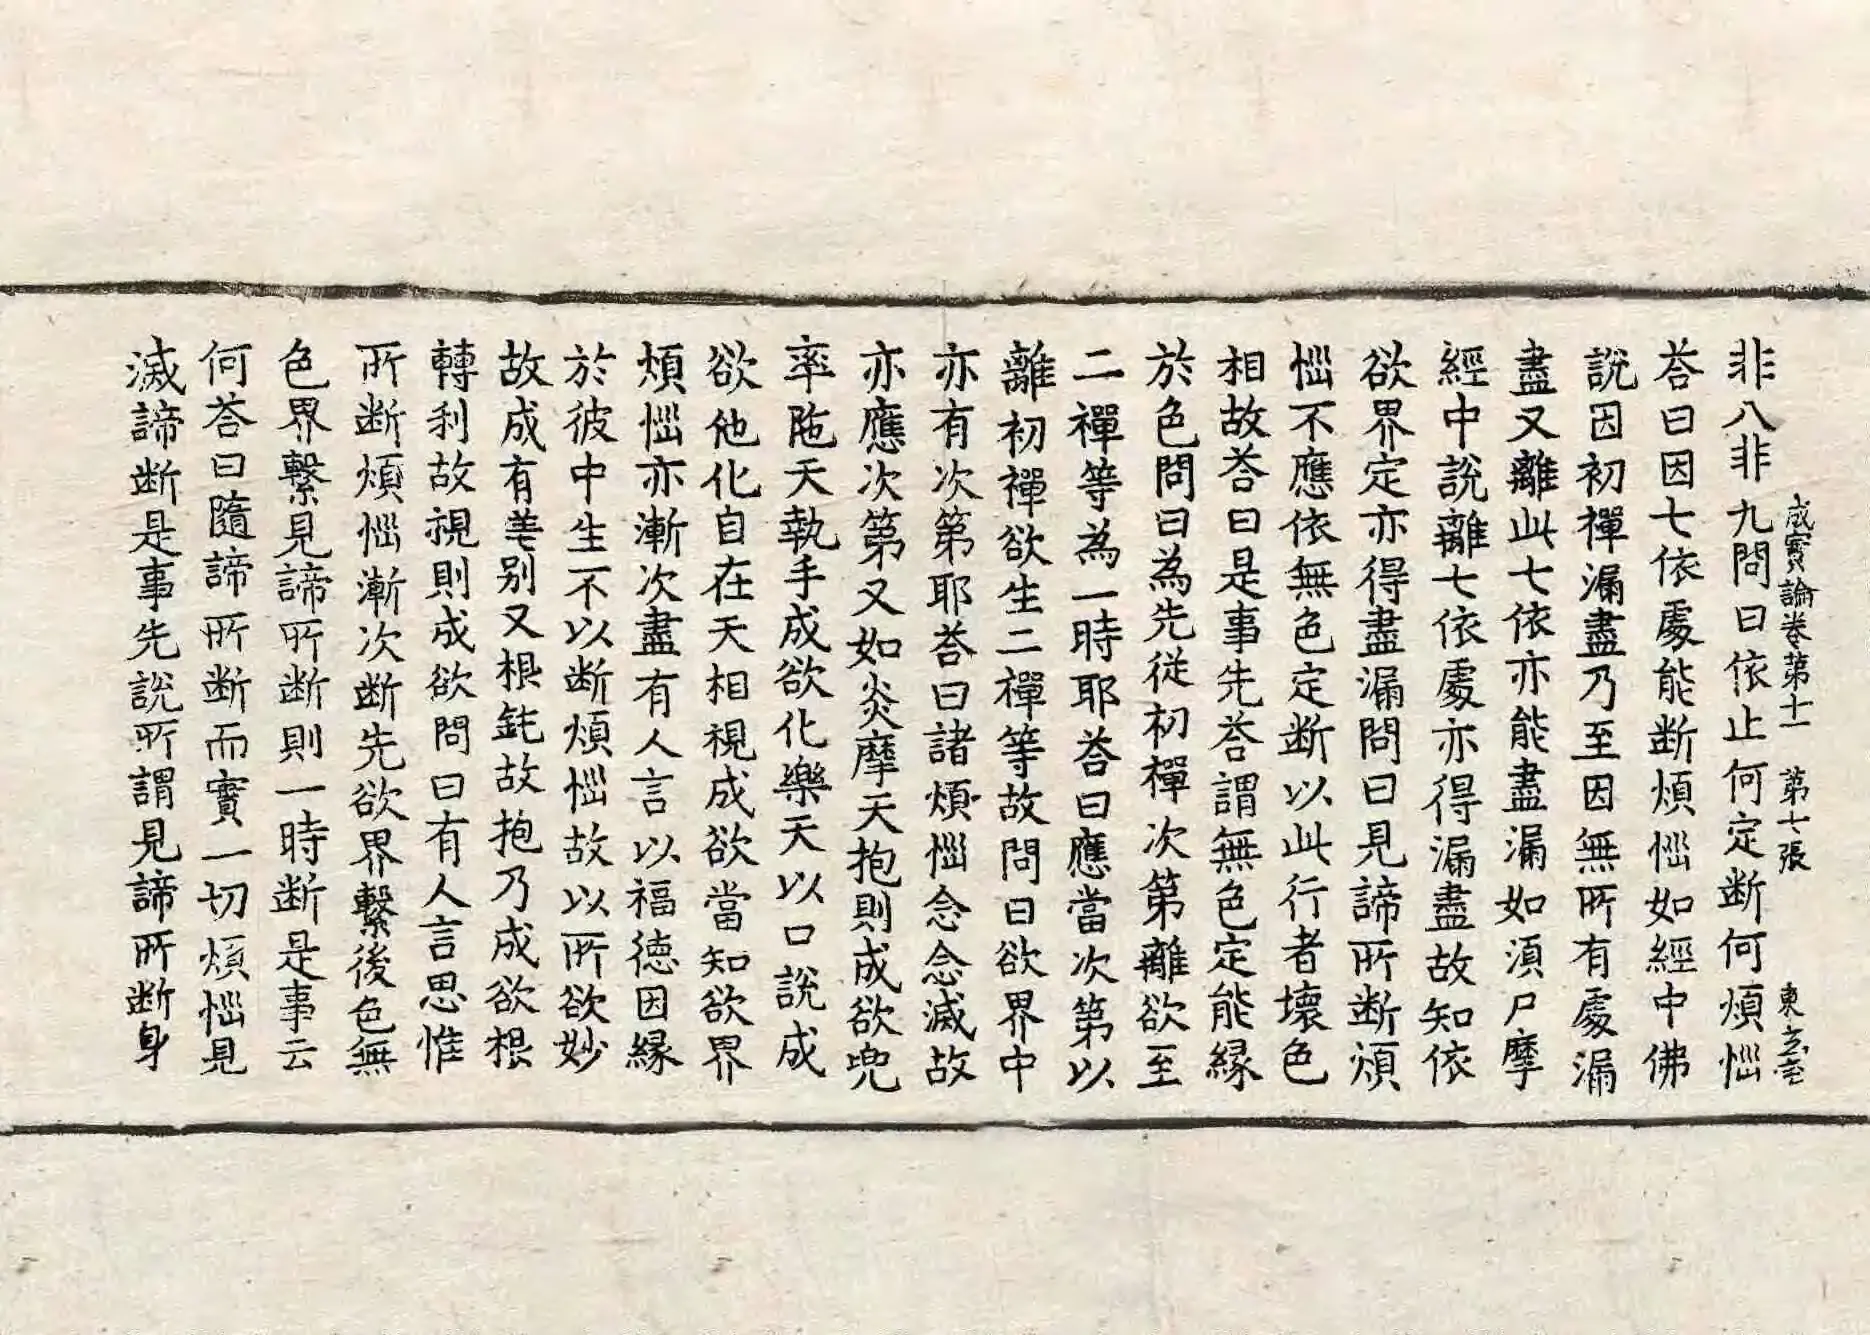 成實論卷第十一 第七張 東
非八非九問曰依止何定断何煩惱
荅曰因七依處能断煩惱如經中佛
說因初禪漏盡乃至因無所有處漏
盡又離此七依亦能盡漏如湏尸摩
經中說離七依處亦得漏盡故知依
欲界定亦得盡漏問曰見諦所断煩
惱不應依無色定断以此行者壞色
相故荅曰是事先荅謂無色定能緣
於色問曰為先從初禪次第離欲至
二禪等為一時耶荅曰應當次第以
離初禪欲生二禪等故問曰欲界中
亦有次第耶荅曰諸煩惱念念滅故
亦應次第又如炎摩天抱則成欲兜
率陁天執手成欲化樂天以口說成
欲他化自在天相視成欲當知欲界
煩惱亦漸次盡有人言以福德因緣
於彼中生不以断煩惱故以所欲妙
故成有差别又根鈍故抱乃成欲根
轉利故視則成欲問曰有人言思惟
所断煩惱漸次断先欲界繫後色無
色界繫見諦所断則一時断是事云
何荅曰隨諦所断而實一切煩惱見
滅諦断是事先說所謂見諦所断身